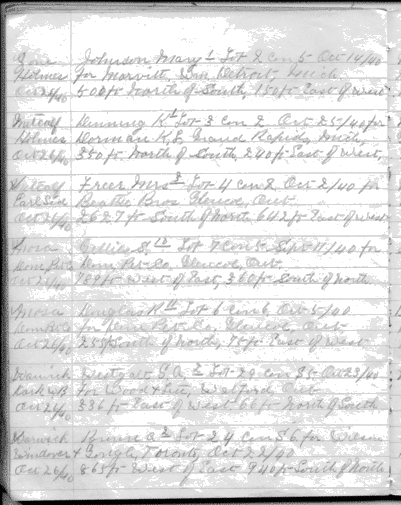 Zone Johnson Mary 1 Lot 2 con 5 Oct 14/40
Holmes for Marvitt, Wm, Detroit, Mich
Oct 26/40 500 ft North of South, 150 ft East of West
Metcalf Denning R Lot 3 Con 2 Oct 25/40 for
Holmes Dorman K.L. Grand Rapids, Mich,
Oct 26/40 330 ft North of South, 240 ft East of West,
Metcalf Freer Mrs 2 Lot 4 con 2 Oct 2/40 for
Beattie Bros Glencoe, Ont.
Oct 26/40 2627 ft South of North 642 ft East of West
Mosa Gillies S. Lot 7 Con 5 Sept 11/40 for
Dom Pet Co, Glencoe, Ont.
Oct 26/40 789 ft West of East, 360 ft South of North
Mosa Douglas R Lot 6 con 6 Oct 5/40
for Dom Pet Co, Glencoe, Ont
Oct 26/40 255 ft South of North, 75 ft East of West
Warwick G.A. 2 Lot 29 con Oct 23/40
for Wood & Watford Ont
Oct 26/40 536 ft East of West 66 ft North of South
Warwick A 2 Lot 24 Con S 6 for
Windover & Toronto, Oct 22/40
Oct 26/40 863 ft West of East 940 ft South of North